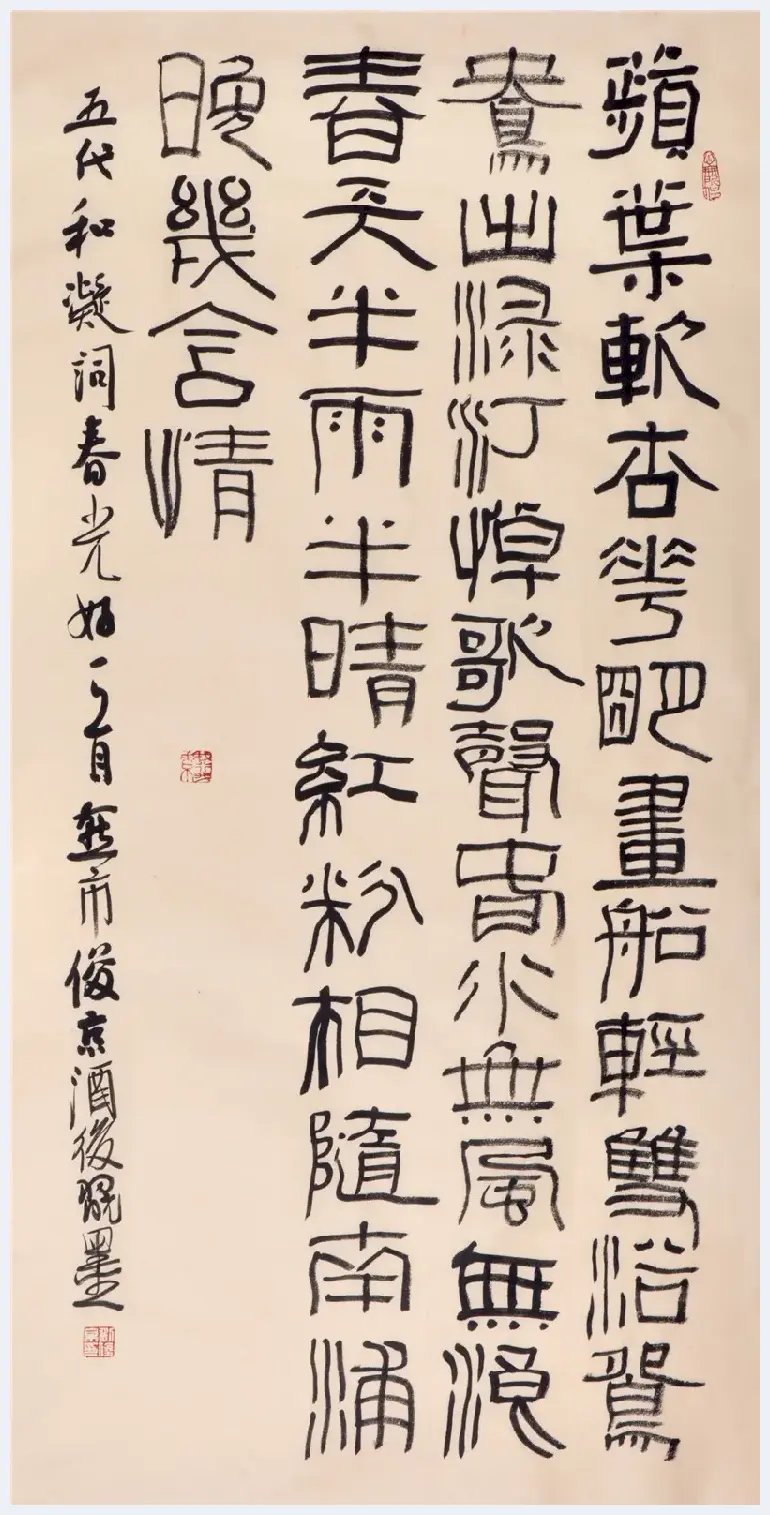 蘋葉軟杏花明畫船輕雙浴鴛
鴦出淥汀棹歌聲春水無風無浪
春天半雨半晴紅粉相隨南浦
晚幾含情
五代和凝詞春光好一首燕市俊京酒後墨